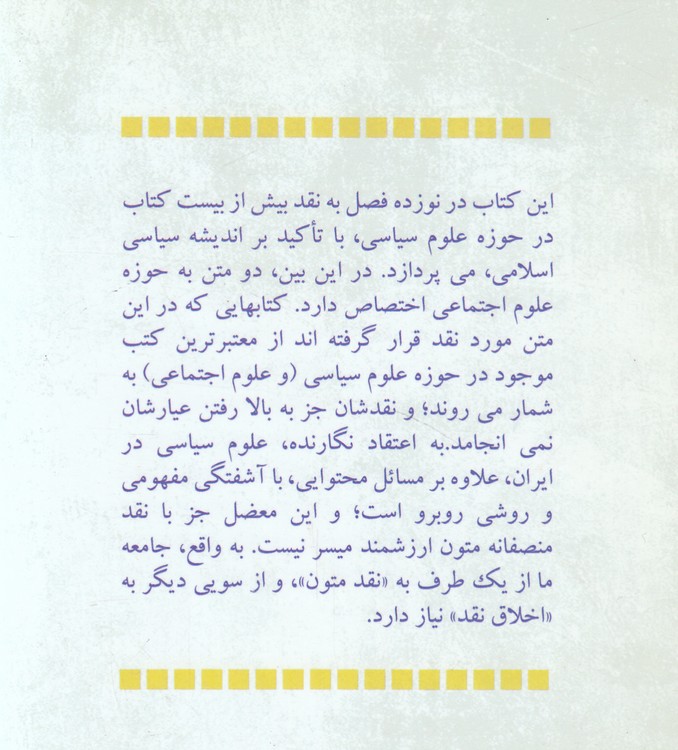 این کتاب در نوزده فصل به نقد بیش از بیست کتاب
در حوزه علوم سیاسی، با تأکید بر اندیشه سیاسی
اسلامی، می پردازد. در این بین، دو متن به حوزه
علوم اجتماعی اختصاص دارد. کتابهایی که در این
متن مورد نقد قرار گرفته اند از معتبرترین کتب
موجود در حوزه علوم سیاسی (و علوم اجتماعی) به
شمار می روند؛ و نقدشان جز به بالا رفتن عیارشان
نمی انجامد.به اعتقاد نگارنده، علوم سیاسی در
ایران، علاوه بر مسائل محتوایی، با آشفتگی مفهومی
و روشی روبرو است؛ و این معضل جز با نقد
منصفانه متون ارزشمند میسر نیست. به واقع، جامعه
ما از یک طرف به «نقد متون»، و از سویی دیگر به
«اخلاق نقد» نیاز دارد.